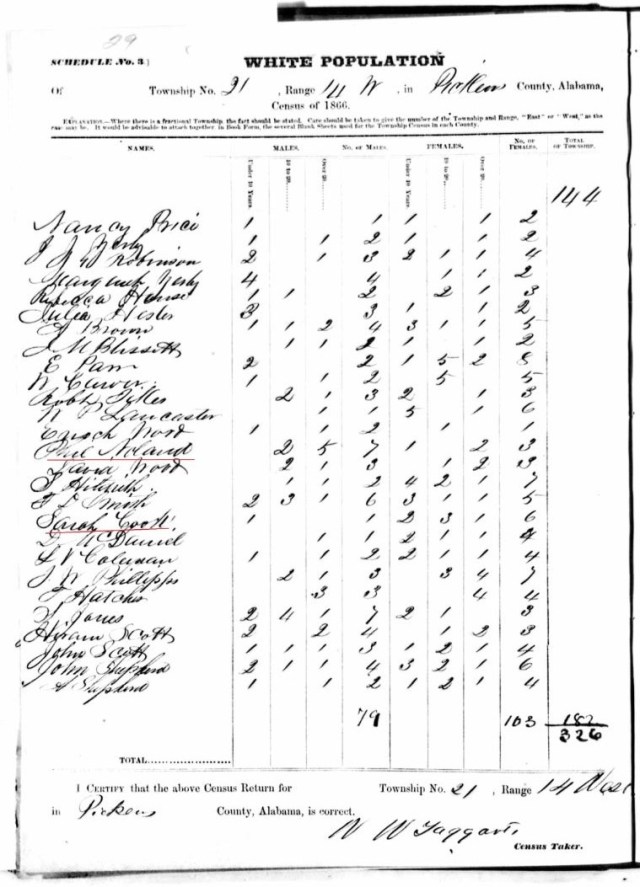 29
SCHEDULE No. 3.] WHITE POPULATION
Of Township No. 21, Range 14 W, in Pickens County, Alabama,
Census of 1866.
EXPLANATION.—Where there is a fractional Township, the fact should be stated. Care should be taken to give the number of the Township and Range, "East" or "West," as the
case may be. It would be advisable to attach together, in Book Form, the several Blank Sheets used for the Township Census in each County.
NAMES. MALES. No. of Males. FEMALES. No. of Females. Total of Township.
Under 10 Years 10 to 20 Over 20 Under 10 Years 10 to 20 Over 20
144
Nancy Price 1 1 1 1 2
J J 1 1 2 1 1 2
J W Robinson 2 1 3 2 1 1 4
Margaret 4 4 1 1 2
Rebecca House 1 1 2 2 1 3
Julia Hester 3 3 1 1 2
Brown 1 1 2 4 3 1 1 5
J M Blissett 1 1 2 1 1 2
E Pam 2 2 1 5 2 8
1 1 2 5 5
Robt 2 1 3 2 1 3
Lancaster 1 1 5 1 6
Enoch Wood 1 1 2 1 1
Phil Noland 2 5 7 1 2 3
David Wood 2 1 3 1 2 3
1 1 2 4 2 1 7
Smith 2 3 1 6 3 1 1 5
Sarah Cook 1 1 2 3 1 6
D McDaniel 1 1 2 1 1 4
Coleman 1 1 2 2 1 1 4
J W Phillipps 2 1 3 3 4 7
Hatches 3 3 4 4
Jones 2 4 1 7 2 1 3
Hiram Scott 2 2 4 1 2 3
John Scott 1 1 1 3 1 2 1 4
John Shepherd 2 1 1 4 3 2 1 6
Shepherd 1 1 2 1 2 1 4
79 103 182
326
TOTAL
I CERTIFY that the above Census Return for Township No. 21, Range 14 West
in Pickens County, Alabama, is correct.
W W Taggart
Census Taker.